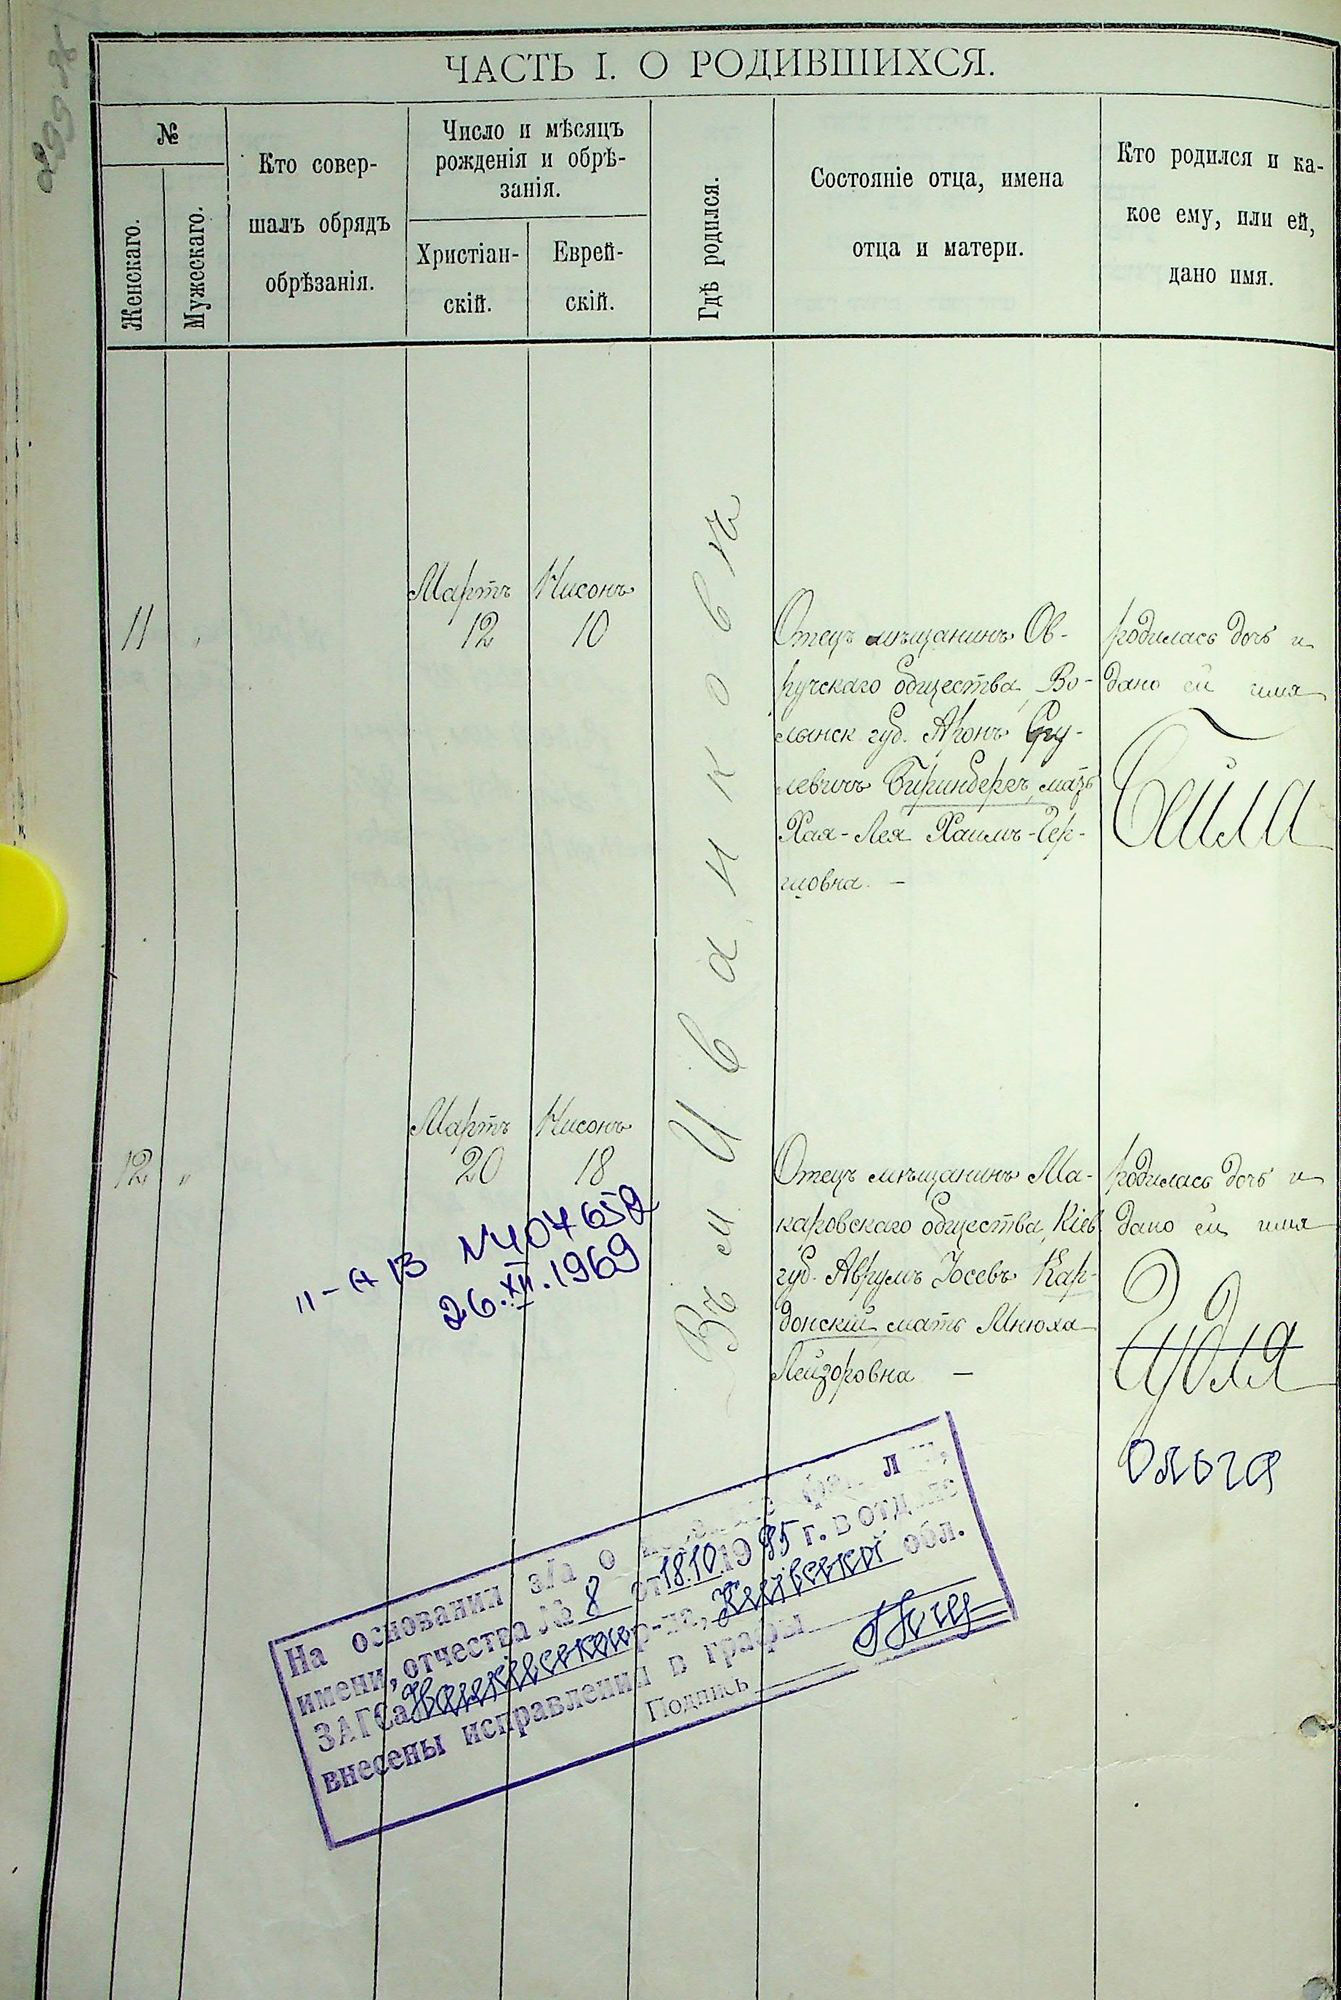 ЧАСТЬ I. О РОДИВШИХСЯ.
№
Женскаго.
Мужескаго.
Кто совер-
шалъ обрядъ
обрѣзанія.
Число и мѣсяцъ
рожденія и обрѣ-
занія.
Христіан-
скій.
Еврей-
скій.
Гдѣ родился.
Состояніе отца, имена
отца и матери.
Кто родился и ка-
кое ему, или ей,
дано имя.
Въ м Иванковъ
11 "
Мартъ
12
Нисонъ
10
Отецъ мѣщанинъ Ов-
ручскаго общества, Во-
лынск. губ. Аронъ Сру-
левичъ Биринбергъ, мать
Хая-Лея Хаимъ-Гер-
шовна. –
родилась дочь и
дано ей имя
Бейла
12 "
Мартъ
20
Нисонъ
18
Отецъ мѣщанинъ Ма-
каровскаго общества, Кіев
губ. Аврумъ Іосевъ Кар-
донскій мать Мнюха
Лейзоровна –
родилась дочь и
дано ей имя
Идля
Ольга
II-АВ №404652
26.XII.1969
На основании з/а о
имени, отчества № 8 от 18.10.1985 г. в отделе
ЗАГСа р-на, Київської обл.
внесены исправления в графы
Подпись